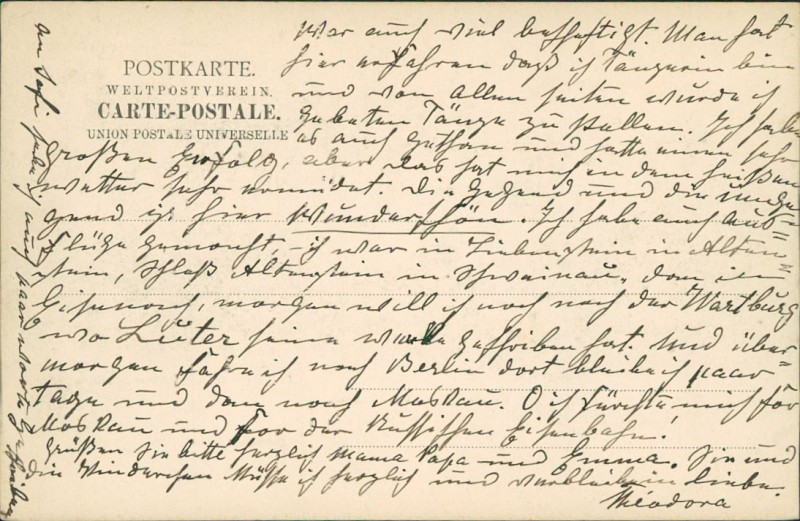 POSTKARTE.
WELTPOSTVEREIN.
CARTE-POSTALE.
UNION POSTALE UNIVERSELLE
war auch viel beschäftigt. Man hat
hier erfahren daß ich Tänzerin bin
und von allen seiten wurde ich
gebeten Tänze zu stellen. Ich habe
es auch gethan und hatte einen sehr
großen Erfolg, aber das hat mich in dem heißen
wetter sehr ermüdet. Die Gegend und die Umge
gend ist hier wunderschön. Ich habe auch Aus=
flüge gemacht - ich war in Liebenstein in Alten=
stein, Schloß Altenstein in Schweinau, dan in
Eisenach, morgen will ich noch nach der Wartburg
wo Lüter seine werke geschrieben hat. Und über=
morgen fahre ich nach Berlin dort bleibe ich paar=
tage und dan nach Moskau. O ich fürchte mich for
Moskau und for der Russischen Eisenbahn.
Grüßen Sie bitte herzlich Mama Papa und Emma. Sie und
die Kinderchen küsse ich herzlich und verbleibe in liebe.
Théodora
an Sofi habe ich auch paar worte geschrieben